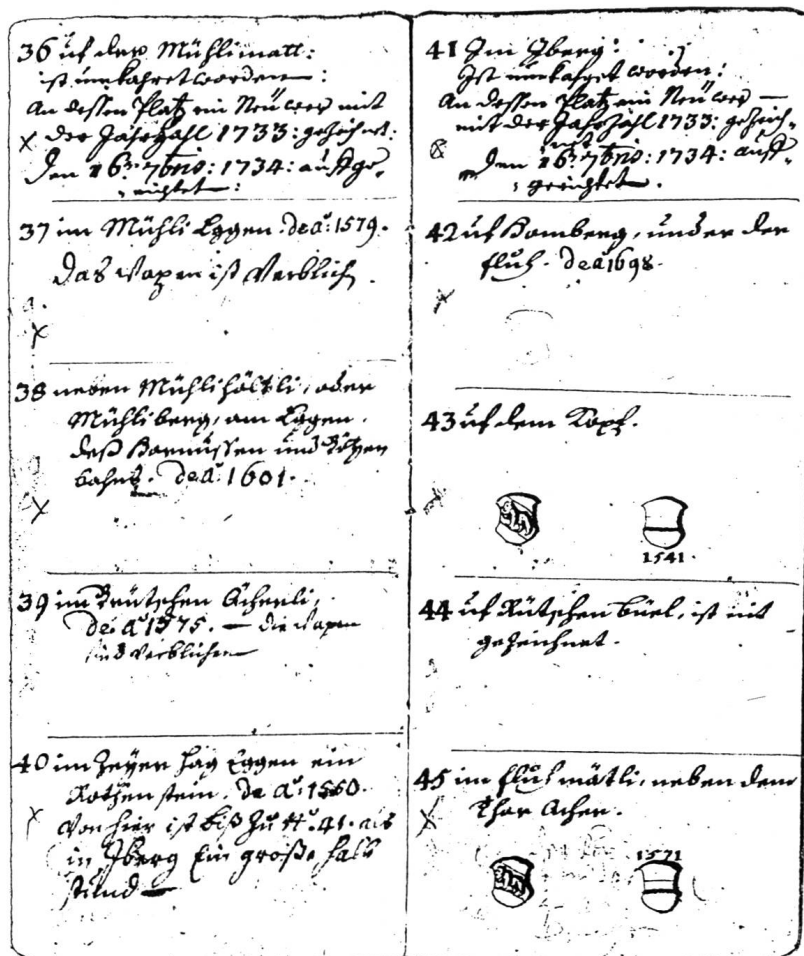 36 uf der Mühlimatt:
ist umkahret worden:
An dessen Platz ein Neüwer mit
der Jahrzahl 1733: gezeichnet:
Den 16: 7bris: 1734: aufge-
richtet:
37 im Mühli Eggen. de a: 1579.
Das Wapen ist Verblichen.
38 neben Mühlihöltzli, oder
Mühliberg, am Eggen,
deß und
de a: 1601.
39 im Ächerli,
de a 1575. — die Wapen
sind Verblichen
40 im Hag Eggen ein
Rothen stein. de a: 1560.
Von hier ist biß zu N: 41. als
in Jberg Ein große halb
stund —
41 Jm Jberg:
Jst umkahret worden:
An dessen Platz ein Neüwer —
mit der Jahrzahl 1733: gezeich-
Den 16: 7bris: 1734: auf-
gerichtet.
42 uf Homberg, under der
fluh. de a 1698.
43 uf dem Kopf.
1541.
44 uf Rütschenbüel, ist nit
gezeichnet.
45 im fluhmätli, neben dem
Thor Acher.
1571